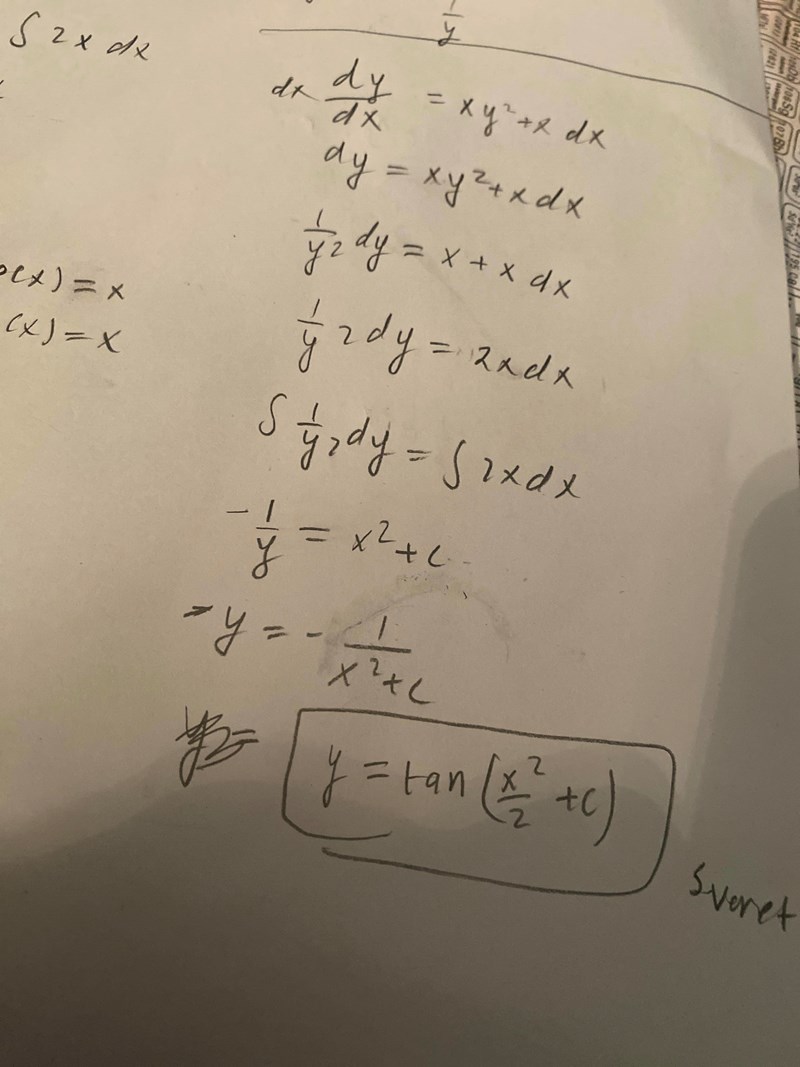 ∫ 2x dx
1/y
dx dy/dx = xy² + x dx
dy = xy² + x dx
1/y² dy = x + x dx
(x) = x
1/y² dy = 2x dx
(x) = x
∫ 1/y² dy = ∫ 2x dx
-1/y = x² + c
y = - 1/(x² + c)
y = tan(x²/2 + c)
Svaret